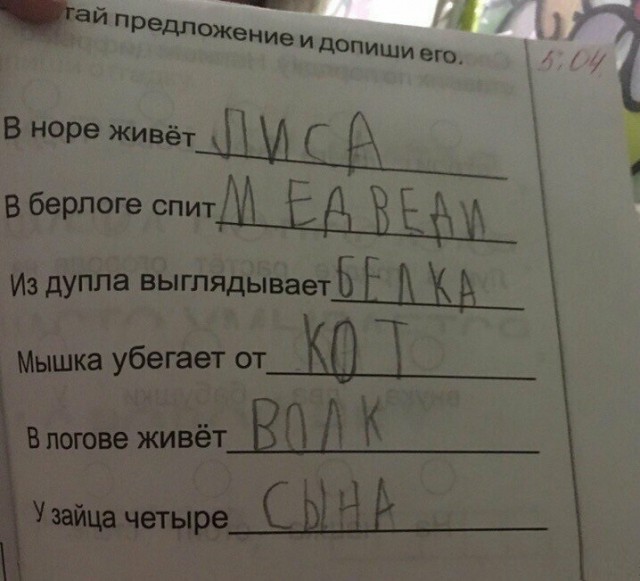 тай предложение и допиши его.
5.04
В норе живёт ЛИСА
В берлоге спит МЕДВЕДИ
Из дупла выглядывает БЕЛКА
Мышка убегает от КОТ
В логове живёт ВОЛК
У зайца четыре СЫНА